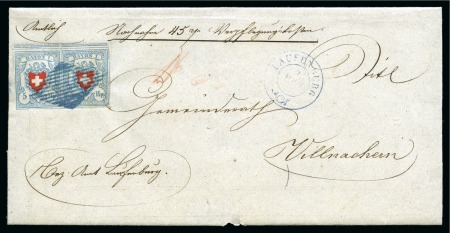 Amtlich Nachnahme 45 rp. Verpflegungskosten
RAYON I RAYON I
5 Rp. 5 Rp.
LAUFENBURG
Tit.
Gemeinderath
Villnachern
Bez. Amt Laufenburg.